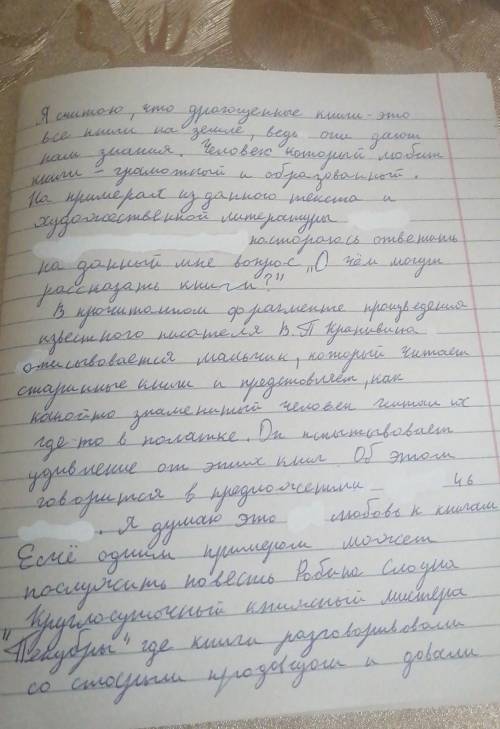 Я считаю, что драгоценные книги - это
все книги на земле, ведь они дают
нам знания. Человек который любит
книги - грамотный и образованный.
На примерах из данного текста и
художественной литературы
постораюсь ответить
на данный мне вопрос „О чём могут
рассказать книги?"
В прочитанном фрагменте произведения
известного писателя В.П Крапивина
описывается мальчик, который читает
старинные книги и представляет, как
какойто знаменитый человек читал их
где-то в палатке. Он испытывает
удивление от этих книг. Об этом
говорится в предложении 46
. Я думаю это любовь к книгам
Есчё одним примером может
послужить повесть Робина Слоуна
„Круглосуточный книжный мистера
Пенумбры" где книги разговоривали
со старым продавцом и довали